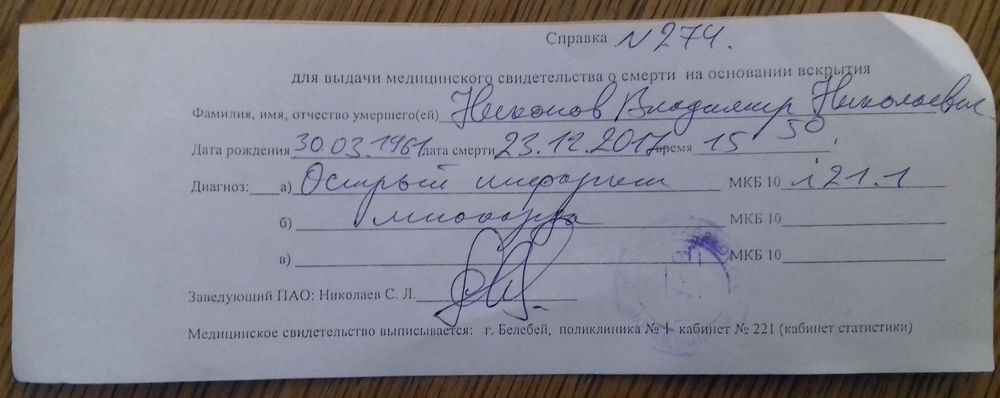 Справка N 274.
для выдачи медицинского свидетельства о смерти на основании вскрытия
Фамилия, имя, отчество умершего(ей) Никонов Владимир Николаевич
Дата рождения 30.03.1961 дата смерти 23.12.2017 время 15 50
Диагноз: а) Острый инфаркт МКБ 10 i 21.1
б) миокарда МКБ 10
в) МКБ 10
Заведующий ПАО: Николаев С. Л.
Медицинское свидетельство выписывается: г. Белебей, поликлиника № 1 кабинет № 221 (кабинет статистики)